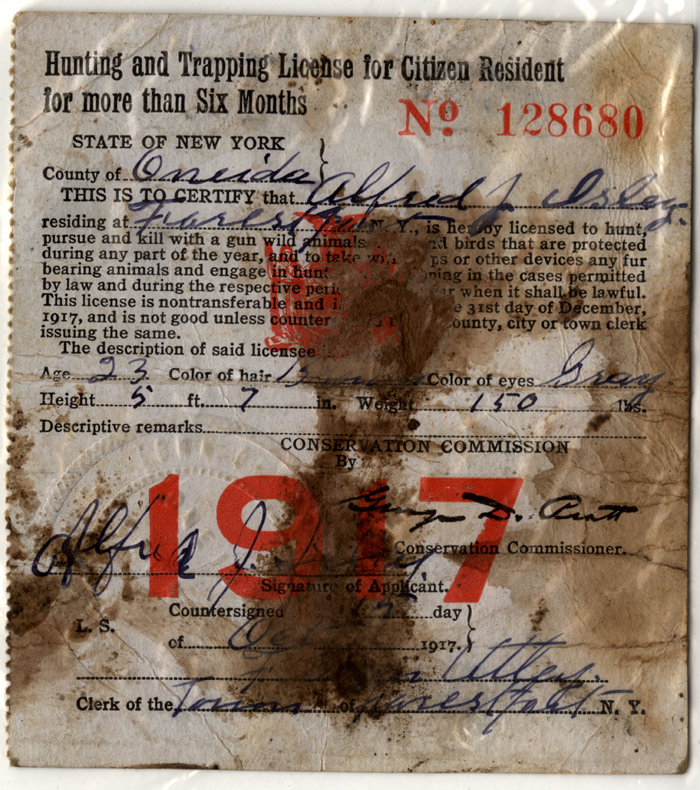 Hunting and Trapping License for Citizen Resident
for more than Six Months
No. 128680
STATE OF NEW YORK
County of Oneida
THIS IS TO CERTIFY that Alfred J.
residing at Forestport N. Y., is hereby licensed to hunt,
pursue and kill with a gun wild animals and birds that are protected
during any part of the year, and to take with or other devices any fur
bearing animals and engage in in the cases permitted
by law and during the respective when it shall be lawful.
This license is nontransferable and 31st day of December,
1917, and is not good unless county, city or town clerk
issuing the same.
The description of said licensee
Age 23 Color of hair Color of eyes Gray
Height 5 ft. 7 in. Weight 150 lbs.
Descriptive remarks
CONSERVATION COMMISSION
By
1917
George D. Pratt
Conservation Commissioner.
Alfred J.
Signature of Applicant.
Countersigned day
L. S.
of 1917.
Utley
Clerk of the Town of Forestport N. Y.